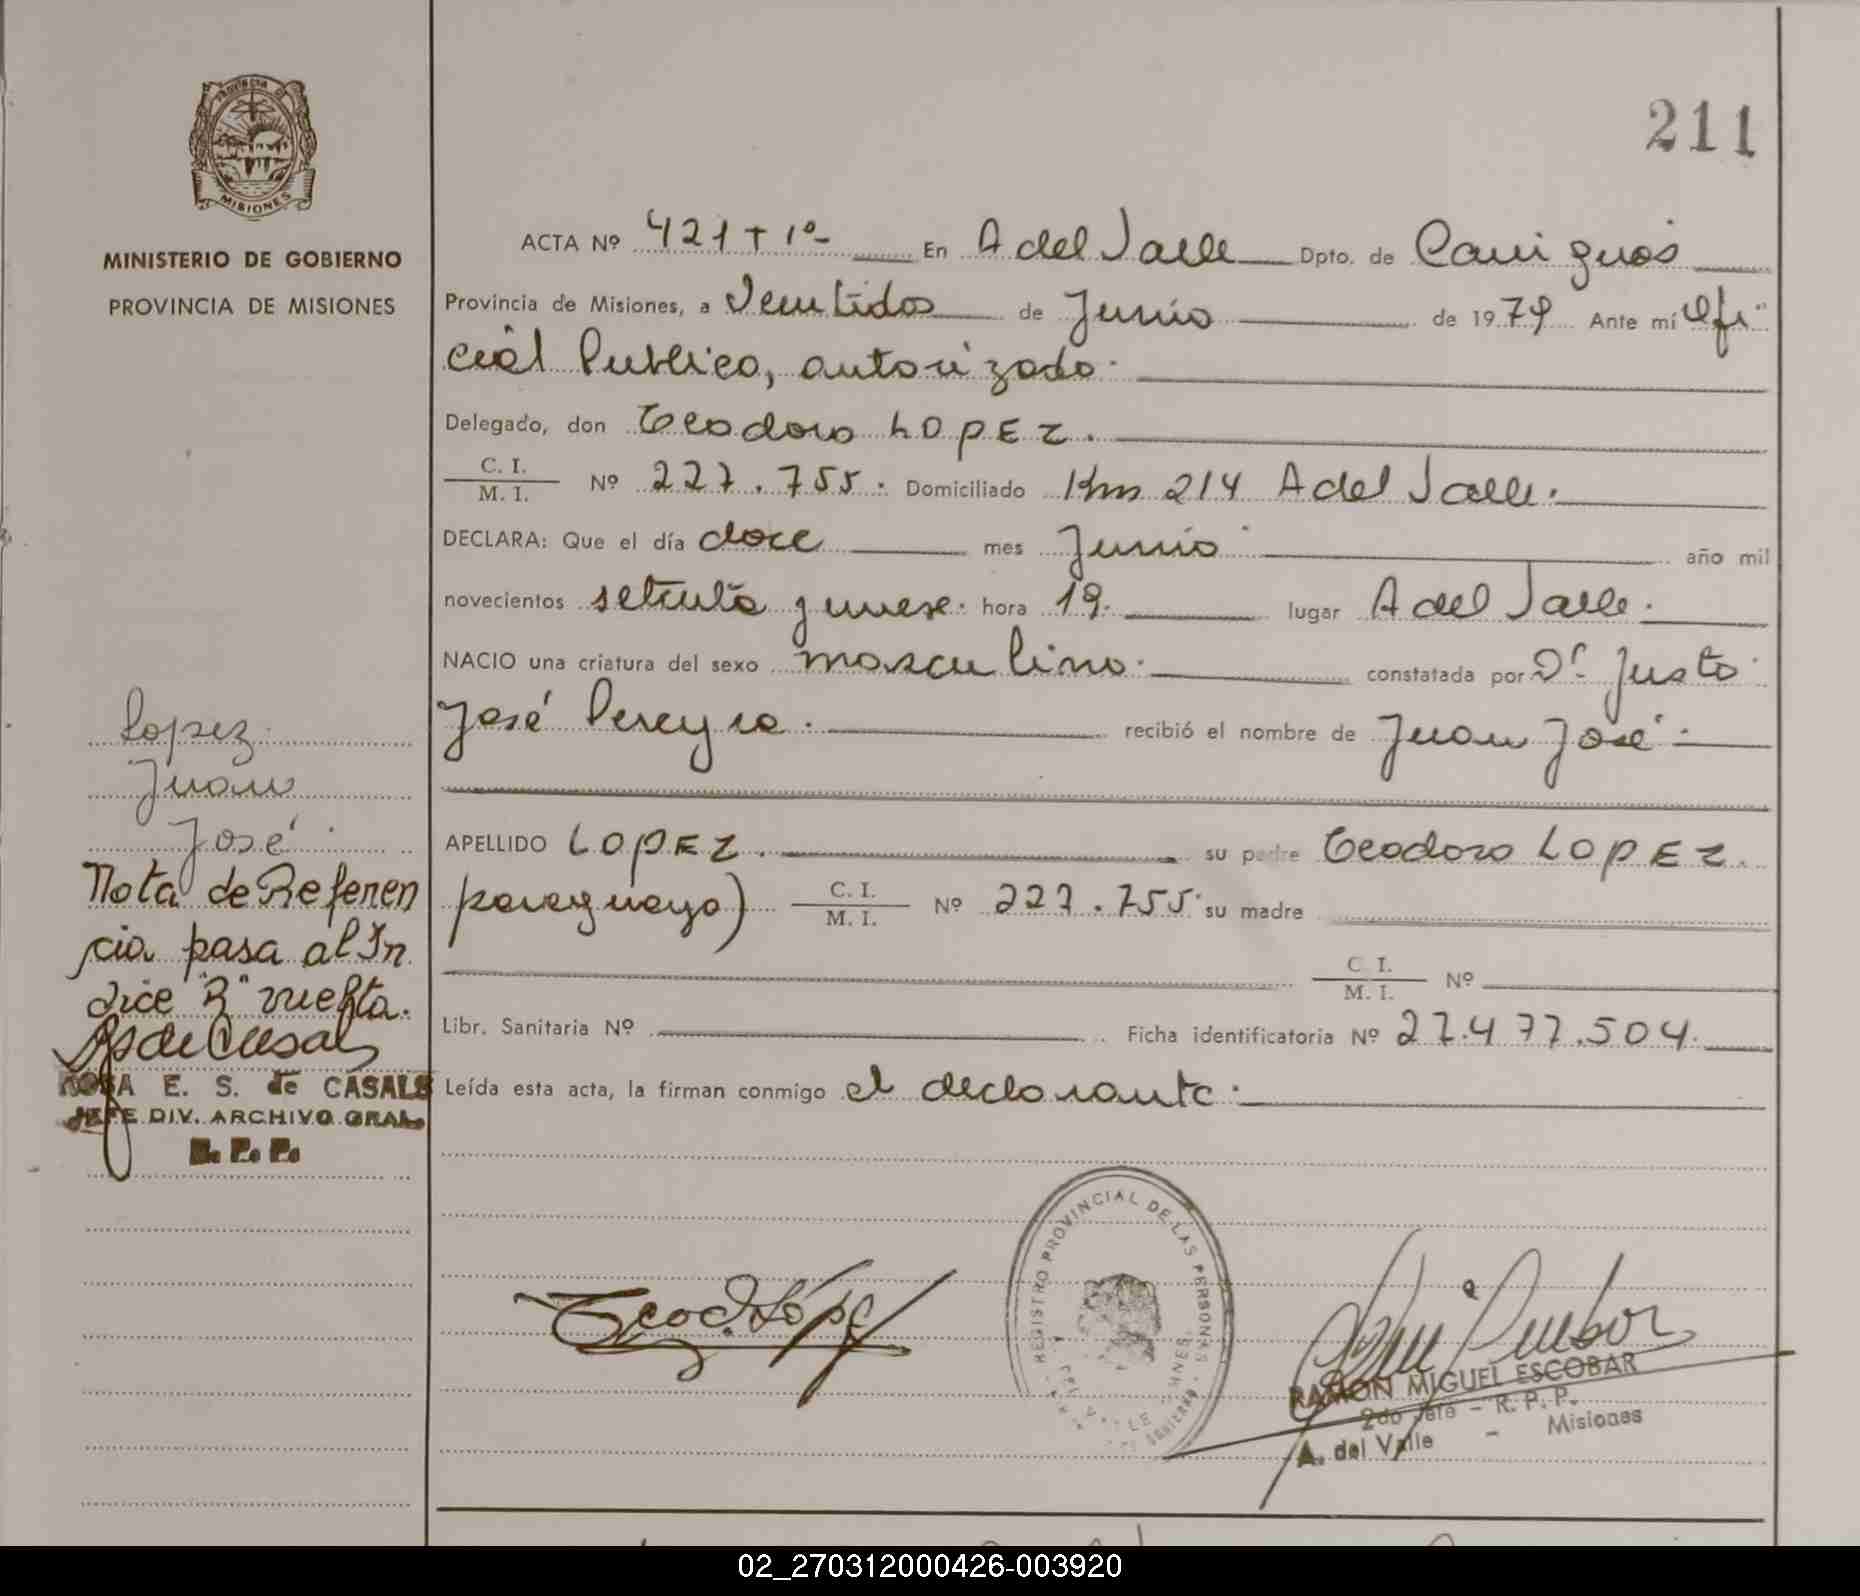 211
MINISTERIO DE GOBIERNO
PROVINCIA DE MISIONES
ACTA Nº 421 T 1º En A del Valle Dpto. de Cainguás
Provincia de Misiones, a Veintidos de Junio de 1979 Ante mí Ofi
cial Publico, autorizado.
Delegado, don Teodoro LOPEZ.
C. I.
M. I. Nº 227.755. Domiciliado Km 214 A del Valle.
DECLARA: Que el día doce mes Junio año mil
novecientos setenta y nueve. hora 19. lugar A del Valle.
NACIO una criatura del sexo masculino. constatada por Dr. Justo
José Pereyra. recibió el nombre de Juan José.
APELLIDO LOPEZ. su padre Teodoro LOPEZ.
paraguayo) C. I.
M. I. Nº 227.755. su madre
C. I.
M. I. Nº
Libr. Sanitaria Nº Ficha identificatoria Nº 27.477.504.
Leída esta acta, la firman conmigo el declarante.
Lopez.
Juan
José.
Nota de Referen
cia pasa al In
dice "R" vuelta.
ROSA E. S. de CASALS
JEFE DIV. ARCHIVO GRAL.
R. P. P.
Teod. López
REGISTRO PROVINCIAL DE LAS PERSONAS
RAMON MIGUEL ESCOBAR
2do Jefe - R. P. P.
A. del Valle - Misiones
02_270312000426-003920